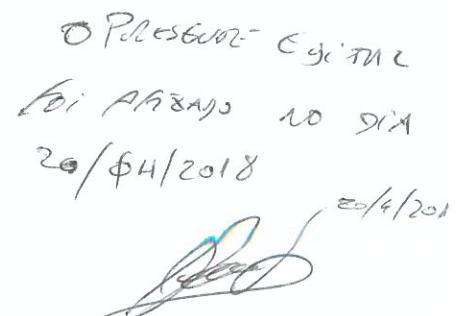 O PRESENTE EDITAL
FOI AFIXADO NO DIA
20/04/2018
20/4/201